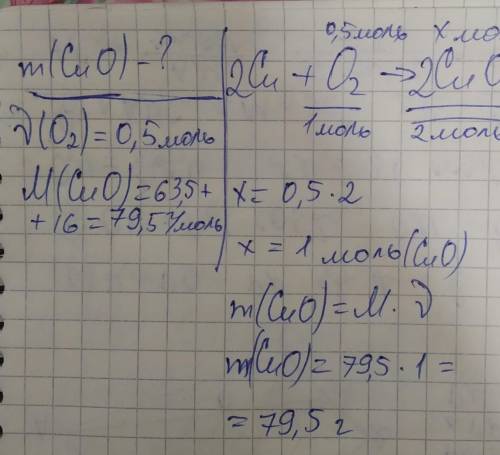 m(CuO) - ?
ν(O₂) = 0,5 моль
M(CuO) = 63,5 +
+ 16 = 79,5 г/моль
0,5 моль x мо
2Cu + O₂ → 2CuO
1 моль 2 моль
x = 0,5 · 2
x = 1 моль (CuO)
m(CuO) = M · ν
m(CuO) = 79,5 · 1 =
= 79,5 г